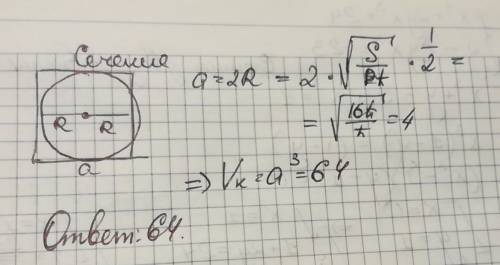 Сечение
R R
a
a = 2R = 2 · √(S/π) · 1/2 =
= √(16π/π) = 4
=> Vк = a³ = 64
Ответ: 64.